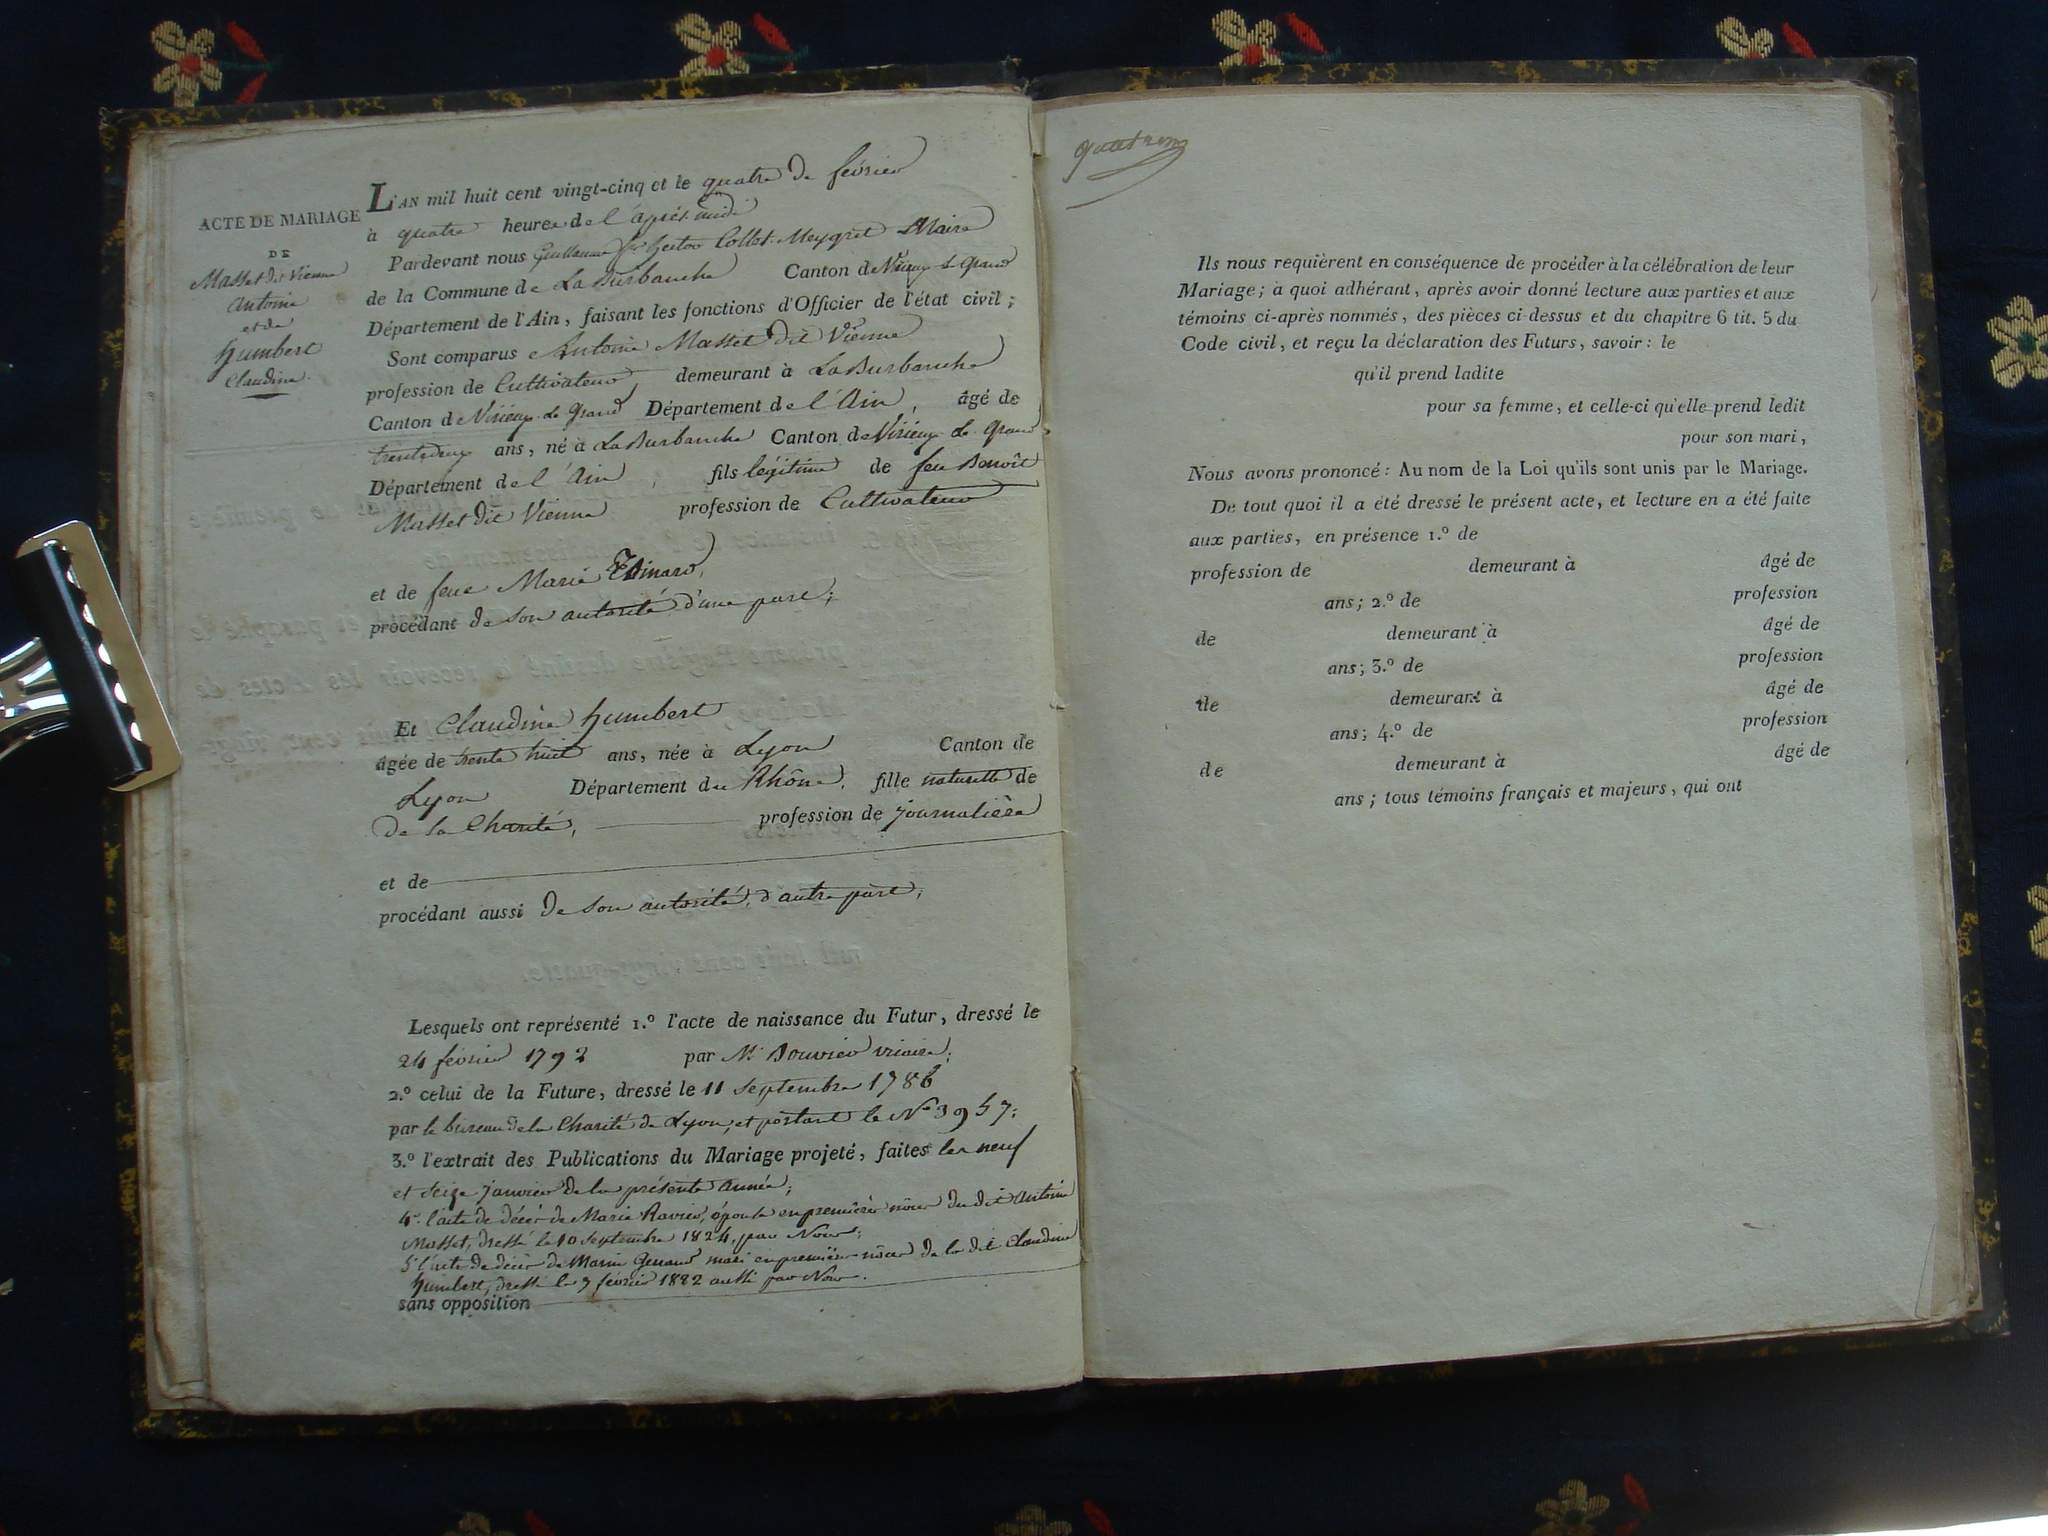 ACTE DE MARIAGE
DE
Masset dit Vienne
Antoine
et de
humbert
Claudine.
L'AN mil huit cent vingt-cinq et le quatre de février
à quatre heures de l'après midi
Pardevant nous Guillaume hector Collet-Meygret Maire
de la Commune de LaBurbanche Canton de Virieux-le-Grand
Département de l'Ain, faisant les fonctions d'Officier de l'état civil;
Sont comparus Antoine Masset dit Vienne
profession de Cultivateur demeurant à LaBurbanche
Canton de Virieux-le-Grand Département de l'Ain, âgé de
trentedeux ans, né à LaBurbanche Canton de Virieux-le-Grand
Département de l'Ain, fils légitime de feu Benoît
Masset dit Vienne profession de Cultivateur
et de feue Marie
procédant de son autorité d'une part;
Et Claudine humbert
âgée de trente huit ans, née à Lyon Canton de
Lyon Département du Rhône, fille naturelle de
de la Charité, profession de journalière
et de
procédant aussi de son autorité, d'autre part;
Lesquels ont représenté 1.º l'acte de naissance du Futur, dressé le
24 février 1792 par Mr Bouvier vicaire;
2.º celui de la Future, dressé le 11 septembre 1786
par le bureau de la Charité de Lyon, et portant le Nº 3957;
3.º l'extrait des Publications du Mariage projeté, faites les neuf
et seize janvier de la présente année;
4º l'acte de décès de Marie Ravier, épouse en premières nôces du dit Antoine
Masset, dressé le 10 septembre 1824, par Nous;
5º l'acte de décès de Marin mari en premières nôces de la dit Claudine
humbert, dressé le 7 février 1822 aussi par Nous.
sans opposition
Ils nous requièrent en conséquence de procéder à la célébration de leur
Mariage; à quoi adhérant, après avoir donné lecture aux parties et aux
témoins ci-après nommés, des pièces ci dessus et du chapitre 6 tit. 5 du
Code civil, et reçu la déclaration des Futurs, savoir: le
qu'il prend ladite
pour sa femme, et celle-ci qu'elle prend ledit
pour son mari,
Nous avons prononcé: Au nom de la Loi qu'ils sont unis par le Mariage.
De tout quoi il a été dressé le présent acte, et lecture en a été faite
aux parties, en présence 1.º de
profession de demeurant à âgé de
ans; 2.º de profession
de demeurant à âgé de
ans; 3.º de profession
de demeurant à âgé de
ans; 4.º de profession
de demeurant à âgé de
ans; tous témoins français et majeurs, qui ont